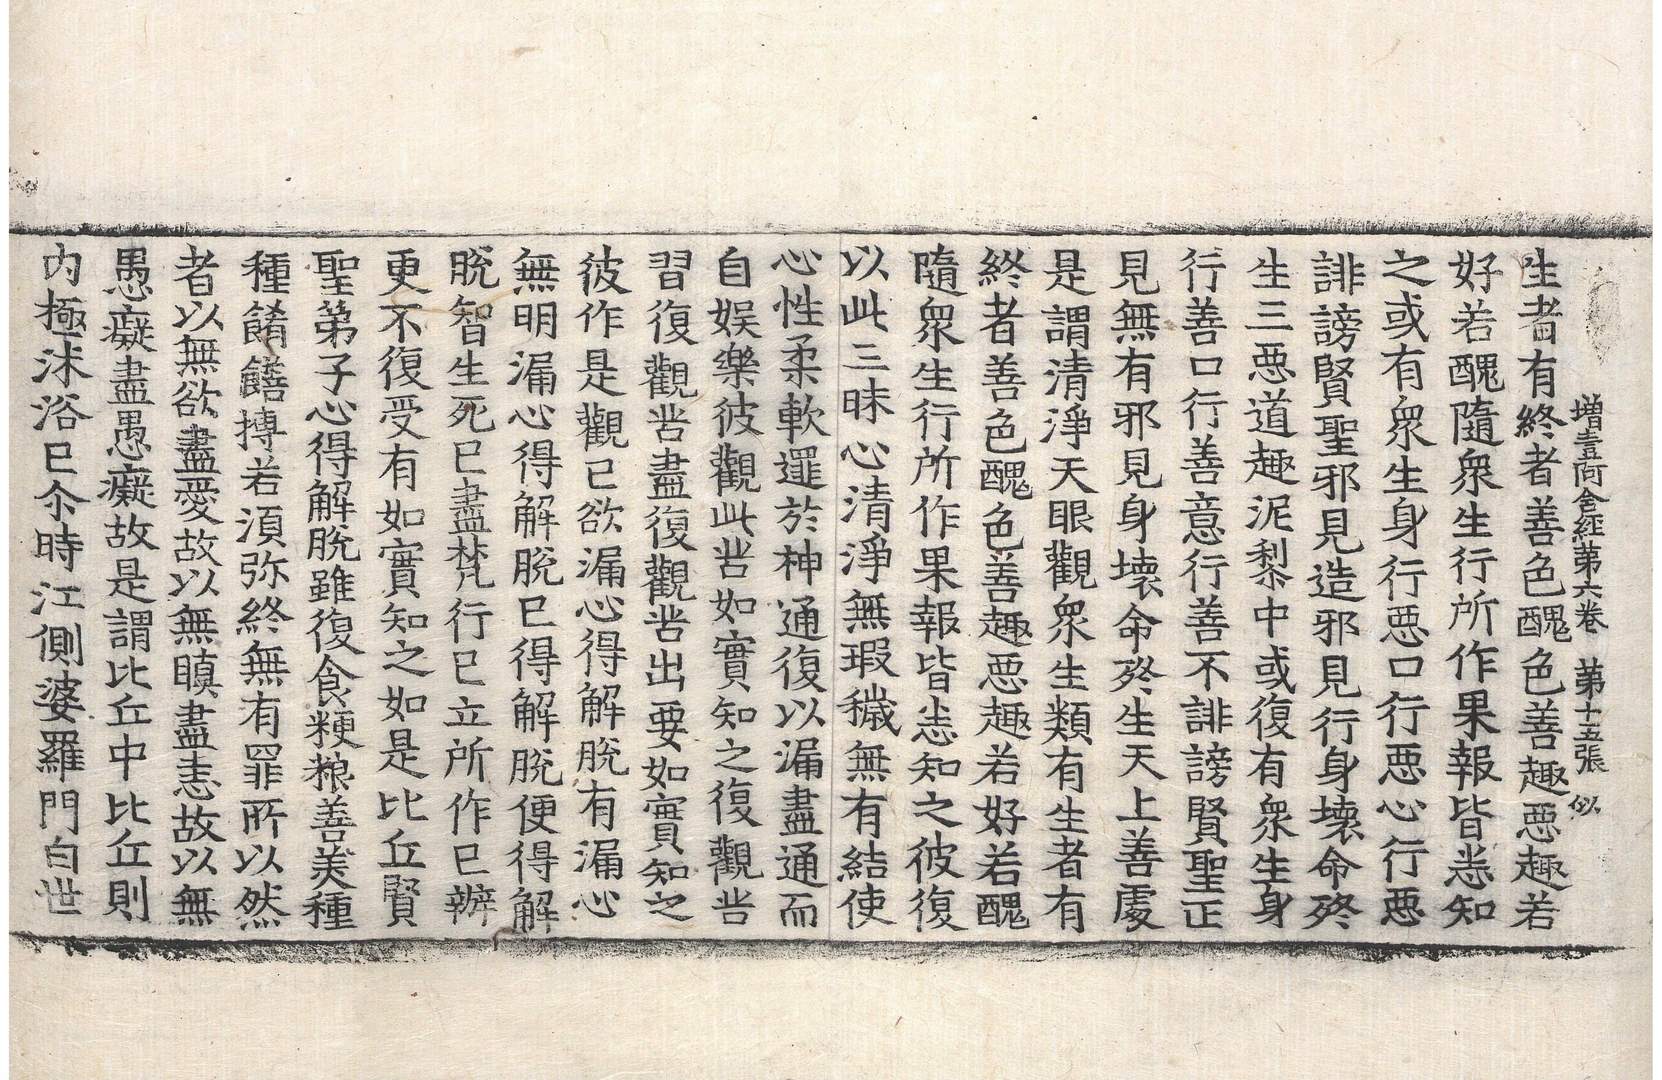 增壹阿含經第六卷 第十五張 似
生者有終者善色醜色善趣惡趣若
好若醜隨衆生行所作果報皆悉知
之或有衆生身行惡口行惡心行惡
誹謗賢聖邪見造邪見行身壞命終
生三惡道趣泥黎中或復有衆生身
行善口行善意行善不誹謗賢聖正
見無有邪見身壞命終生天上善處
是謂清淨天眼觀衆生類有生者有
終者善色醜色善趣惡趣若好若醜
隨衆生行所作果報皆悉知之彼復
以此三昧心清淨無瑕穢無有結使
心性柔軟逮於神通復以漏盡通而
自娛樂彼觀此苦如實知之復觀苦
習復觀苦盡復觀苦出要如實知之
彼作是觀已欲漏心得解脫有漏心
無明漏心得解脫已得解脫便得解
脫智生死已盡梵行已立所作已辦
更不復受有如實知之如是比丘賢
聖弟子心得解脫雖復食粳粮善美種
種餚饍摶若須弥終無有罪所以然
者以無欲盡愛故以無瞋盡恚故以無
愚癡盡愚癡故是謂比丘中比丘則
內極沐浴已尒時江側婆羅門白世